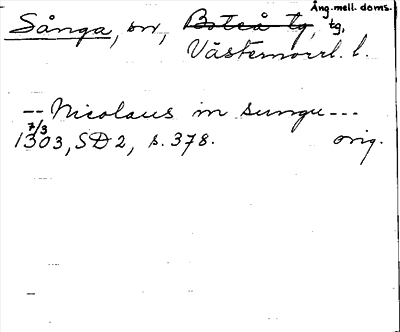 Ång. mell. doms.
Sånga, sn, Boteå tg, tg,
Västernorrl. l.
-- Nicolaus in sungu ---
7/3
1303, SD 2, s. 378. orig.